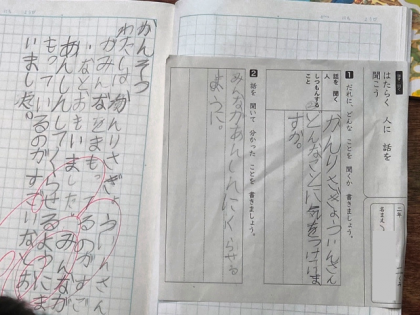 はたらく 人に 話を
聞こう
二年
名まえ
1 だれに、どんな ことを 聞くか 書きましょう。
話を 聞く
人
しつもんする
こと
かんりさぎょういんさん
どんなことに気をつけていま
すか。
2 話を 聞いて 分かった ことを 書きましょう。
みんながあんしんにくらせる
ように。
かんそう
わたしは、かんりさぎょういんさん
がみんなをまもっているのがすご
いなとおもいました。みんなが
あんしんしてくらせるようにま
もっているのがすごいなとおも
いました。